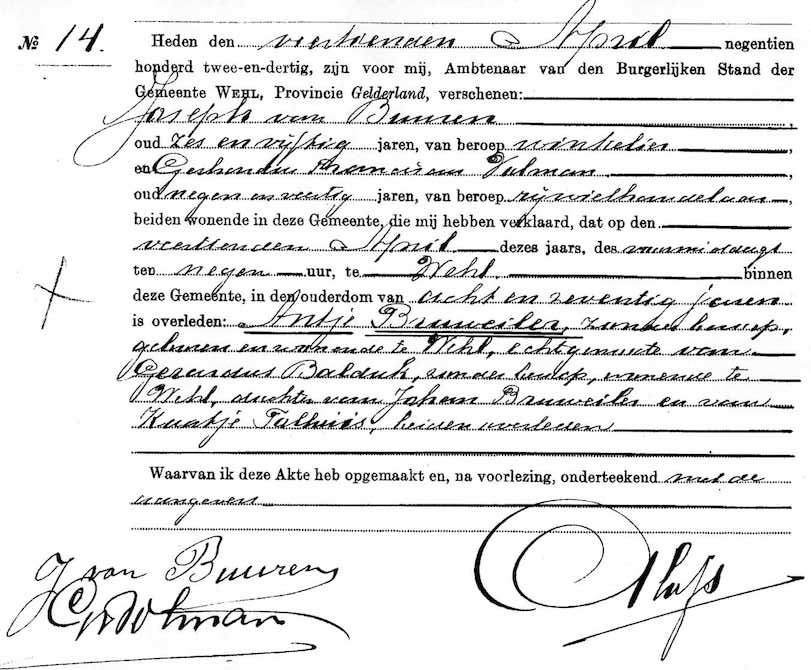 № 14.
Heden den veertienden April negentien
honderd twee-en-dertig, zijn voor mij, Ambtenaar van den Burgerlijken Stand der
Gemeente WEHL, Provincie Gelderland, verschenen:
Joseph van Buuren,
oud zes en vijftig jaren, van beroep winkelier,
en Gerhardus Franciscus Volman,
oud negen en veertig jaren, van beroep rijwielhandelaar,
beiden wonende in deze Gemeente, die mij hebben verklaard, dat op den
veertienden April dezes jaars, des voormiddags
ten negen uur, te Wehl binnen
deze Gemeente, in den ouderdom van acht en zeventig jaren
is overleden: Antje Bruweiler, zonder beroep,
geboren en wonende te Wehl, echtgenoote van
Gerardus Balduk, zonder beroep, wonende te
Wehl, dochter van Johan Bruweiler en van
Kaatje Talhuis, beiden overleden
Waarvan ik deze Akte heb opgemaakt en, na voorlezing, onderteekend met de
aangevers
J van Buuren